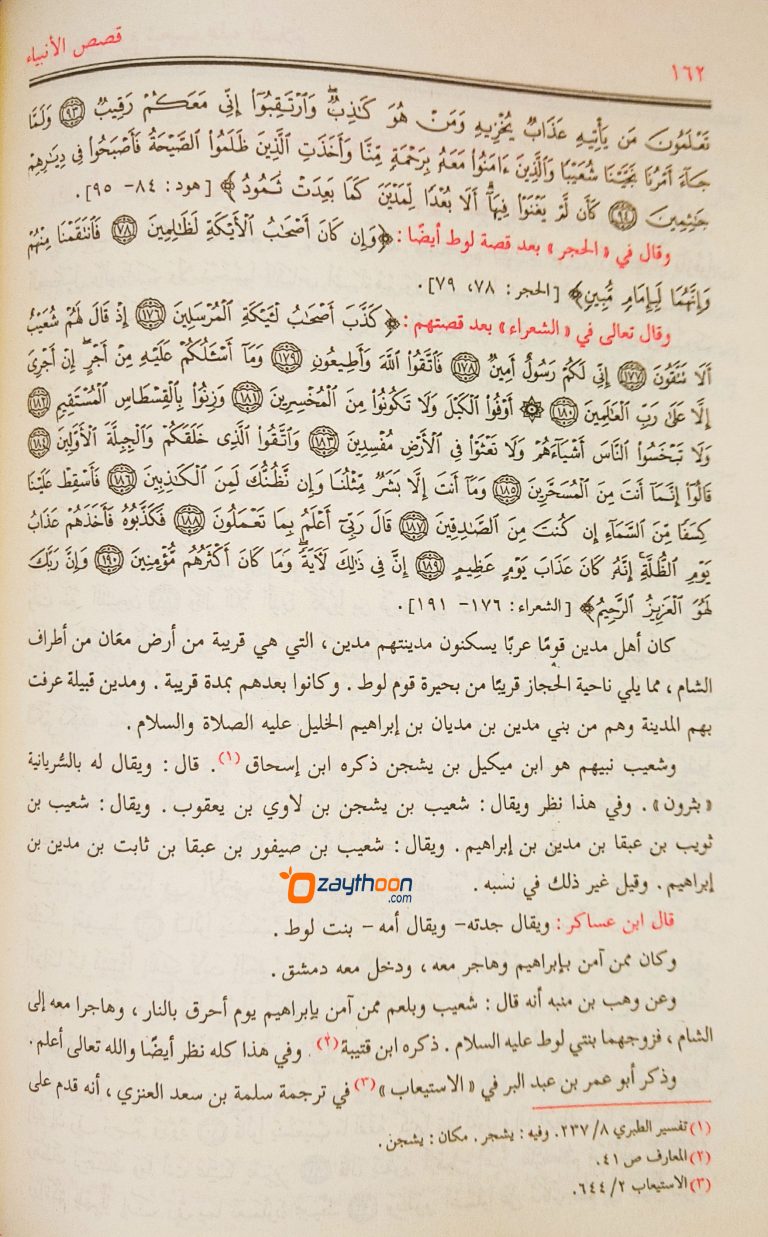 ١٦٢
قصص الأنبياء
تَعْلَمُونَ مَن يَأْتِيهِ عَذَابٌ يُخْزِيهِ وَمَنْ هُوَ كَٰذِبٌ ۖ وَٱرْتَقِبُوٓا۟ إِنِّى مَعَكُمْ رَقِيبٌ ﴿٩٣﴾ وَلَمَّا
جَآءَ أَمْرُنَا نَجَّيْنَا شُعَيْبًا وَٱلَّذِينَ ءَامَنُوا۟ مَعَهُۥ بِرَحْمَةٍ مِّنَّا وَأَخَذَتِ ٱلَّذِينَ ظَلَمُوا۟ ٱلصَّيْحَةُ فَأَصْبَحُوا۟ فِى دِيَٰرِهِمْ
جَٰثِمِينَ ﴿٩٤﴾ كَأَن لَّمْ يَغْنَوْا۟ فِيهَآ ۗ أَلَا بُعْدًا لِّمَدْيَنَ كَمَا بَعِدَتْ ثَمُودُ﴾ [هود: ٨٤- ٩٥].
وقال في «الحجر» بعد قصة لوط أيضًا: ﴿وَإِن كَانَ أَصْحَٰبُ ٱلْأَيْكَةِ لَظَٰلِمِينَ ﴿٧٨﴾ فَٱنتَقَمْنَا مِنْهُمْ
وَإِنَّهُمَا لَبِإِمَامٍ مُّبِينٍ﴾ [الحجر: ٧٨، ٧٩].
وقال تعالى في «الشعراء» بعد قصتهم: ﴿كَذَّبَ أَصْحَٰبُ لْـَٔيْكَةِ ٱلْمُرْسَلِينَ ﴿١٧٦﴾ إِذْ قَالَ لَهُمْ شُعَيْبٌ
أَلَا تَتَّقُونَ ﴿١٧٧﴾ إِنِّى لَكُمْ رَسُولٌ أَمِينٌ ﴿١٧٨﴾ فَٱتَّقُوا۟ ٱللَّهَ وَأَطِيعُونِ ﴿١٧٩﴾ وَمَآ أَسْـَٔلُكُمْ عَلَيْهِ مِنْ أَجْرٍ ۖ إِنْ أَجْرِىَ
إِلَّا عَلَىٰ رَبِّ ٱلْعَٰلَمِينَ ﴿١٨٠﴾ ۞ أَوْفُوا۟ ٱلْكَيْلَ وَلَا تَكُونُوا۟ مِنَ ٱلْمُخْسِرِينَ ﴿١٨١﴾ وَزِنُوا۟ بِٱلْقِسْطَاسِ ٱلْمُسْتَقِيمِ ﴿١٨٢﴾
وَلَا تَبْخَسُوا۟ ٱلنَّاسَ أَشْيَآءَهُمْ وَلَا تَعْثَوْا۟ فِى ٱلْأَرْضِ مُفْسِدِينَ ﴿١٨٣﴾ وَٱتَّقُوا۟ ٱلَّذِى خَلَقَكُمْ وَٱلْجِبِلَّةَ ٱلْأَوَّلِينَ ﴿١٨٤﴾
قَالُوٓا۟ إِنَّمَآ أَنتَ مِنَ ٱلْمُسَحَّرِينَ ﴿١٨٥﴾ وَمَآ أَنتَ إِلَّا بَشَرٌ مِّثْلُنَا وَإِن نَّظُنُّكَ لَمِنَ ٱلْكَٰذِبِينَ ﴿١٨٦﴾ فَأَسْقِطْ عَلَيْنَا
كِسَفًا مِّنَ ٱلسَّمَآءِ إِن كُنتَ مِنَ ٱلصَّٰدِقِينَ ﴿١٨٧﴾ قَالَ رَبِّىٓ أَعْلَمُ بِمَا تَعْمَلُونَ ﴿١٨٨﴾ فَكَذَّبُوهُ فَأَخَذَهُمْ عَذَابُ
يَوْمِ ٱلظُّلَّةِ ۚ إِنَّهُۥ كَانَ عَذَابَ يَوْمٍ عَظِيمٍ ﴿١٨٩﴾ إِنَّ فِى ذَٰلِكَ لَءَايَةً ۖ وَمَا كَانَ أَكْثَرُهُم مُّؤْمِنِينَ ﴿١٩٠﴾ وَإِنَّ رَبَّكَ
لَهُوَ ٱلْعَزِيزُ ٱلرَّحِيمُ﴾ [الشعراء: ١٧٦- ١٩١].
كان أهل مدين قومًا عربًا يسكنون مدينتهم مدين، التي هي قريبة من أرض معَان من أطراف
الشام، مما يلي ناحية الحجاز قريبًا من بحيرة قوم لوط. وكانوا بعدهم بمدة قريبة. ومدين قبيلة عرفت
بهم المدينة وهم من بني مدين بن مديان بن إبراهيم الخليل عليه الصلاة والسلام.
وشعيب نبيهم هو ابن ميكيل بن يشجن ذكره ابن إسحاق(١). قال: ويقال له بالسُّريانية
«بثرون». وفي هذا نظر ويقال: شعيب بن يشجن بن لاوي بن يعقوب. ويقال: شعيب بن
ثويب بن عبقا بن مدين بن إبراهيم. ويقال: شعيب بن صيفور بن عبقا بن ثابت بن مدين بن
إبراهيم. وقيل غير ذلك في نسبه.
zaythoon
.com
قال ابن عساكر: ويقال جدته- ويقال أمه- بنت لوط.
وكان ممن آمن بإبراهيم وهاجر معه، ودخل معه دمشق.
وعن وهب بن منبه أنه قال: شعيب وبلعم ممن آمن بإبراهيم يوم أحرق بالنار، وهاجرا معه إلى
الشام، فزوجهما بنتي لوط عليه السلام. ذكره ابن قتيبة(٢). وفي هذا كله نظر أيضًا والله تعالى أعلم.
وذكر أبو عمر بن عبد البر في «الاستيعاب»(٣) في ترجمة سلمة بن سعد العنزي، أنه قدم على
(١) تفسير الطبري ٨/ ٢٣٧. وفيه: يشجر. مكان: يشجن.
(٢) المعارف ص ٤١.
(٣) الاستيعاب ٢/ ٦٤٤.